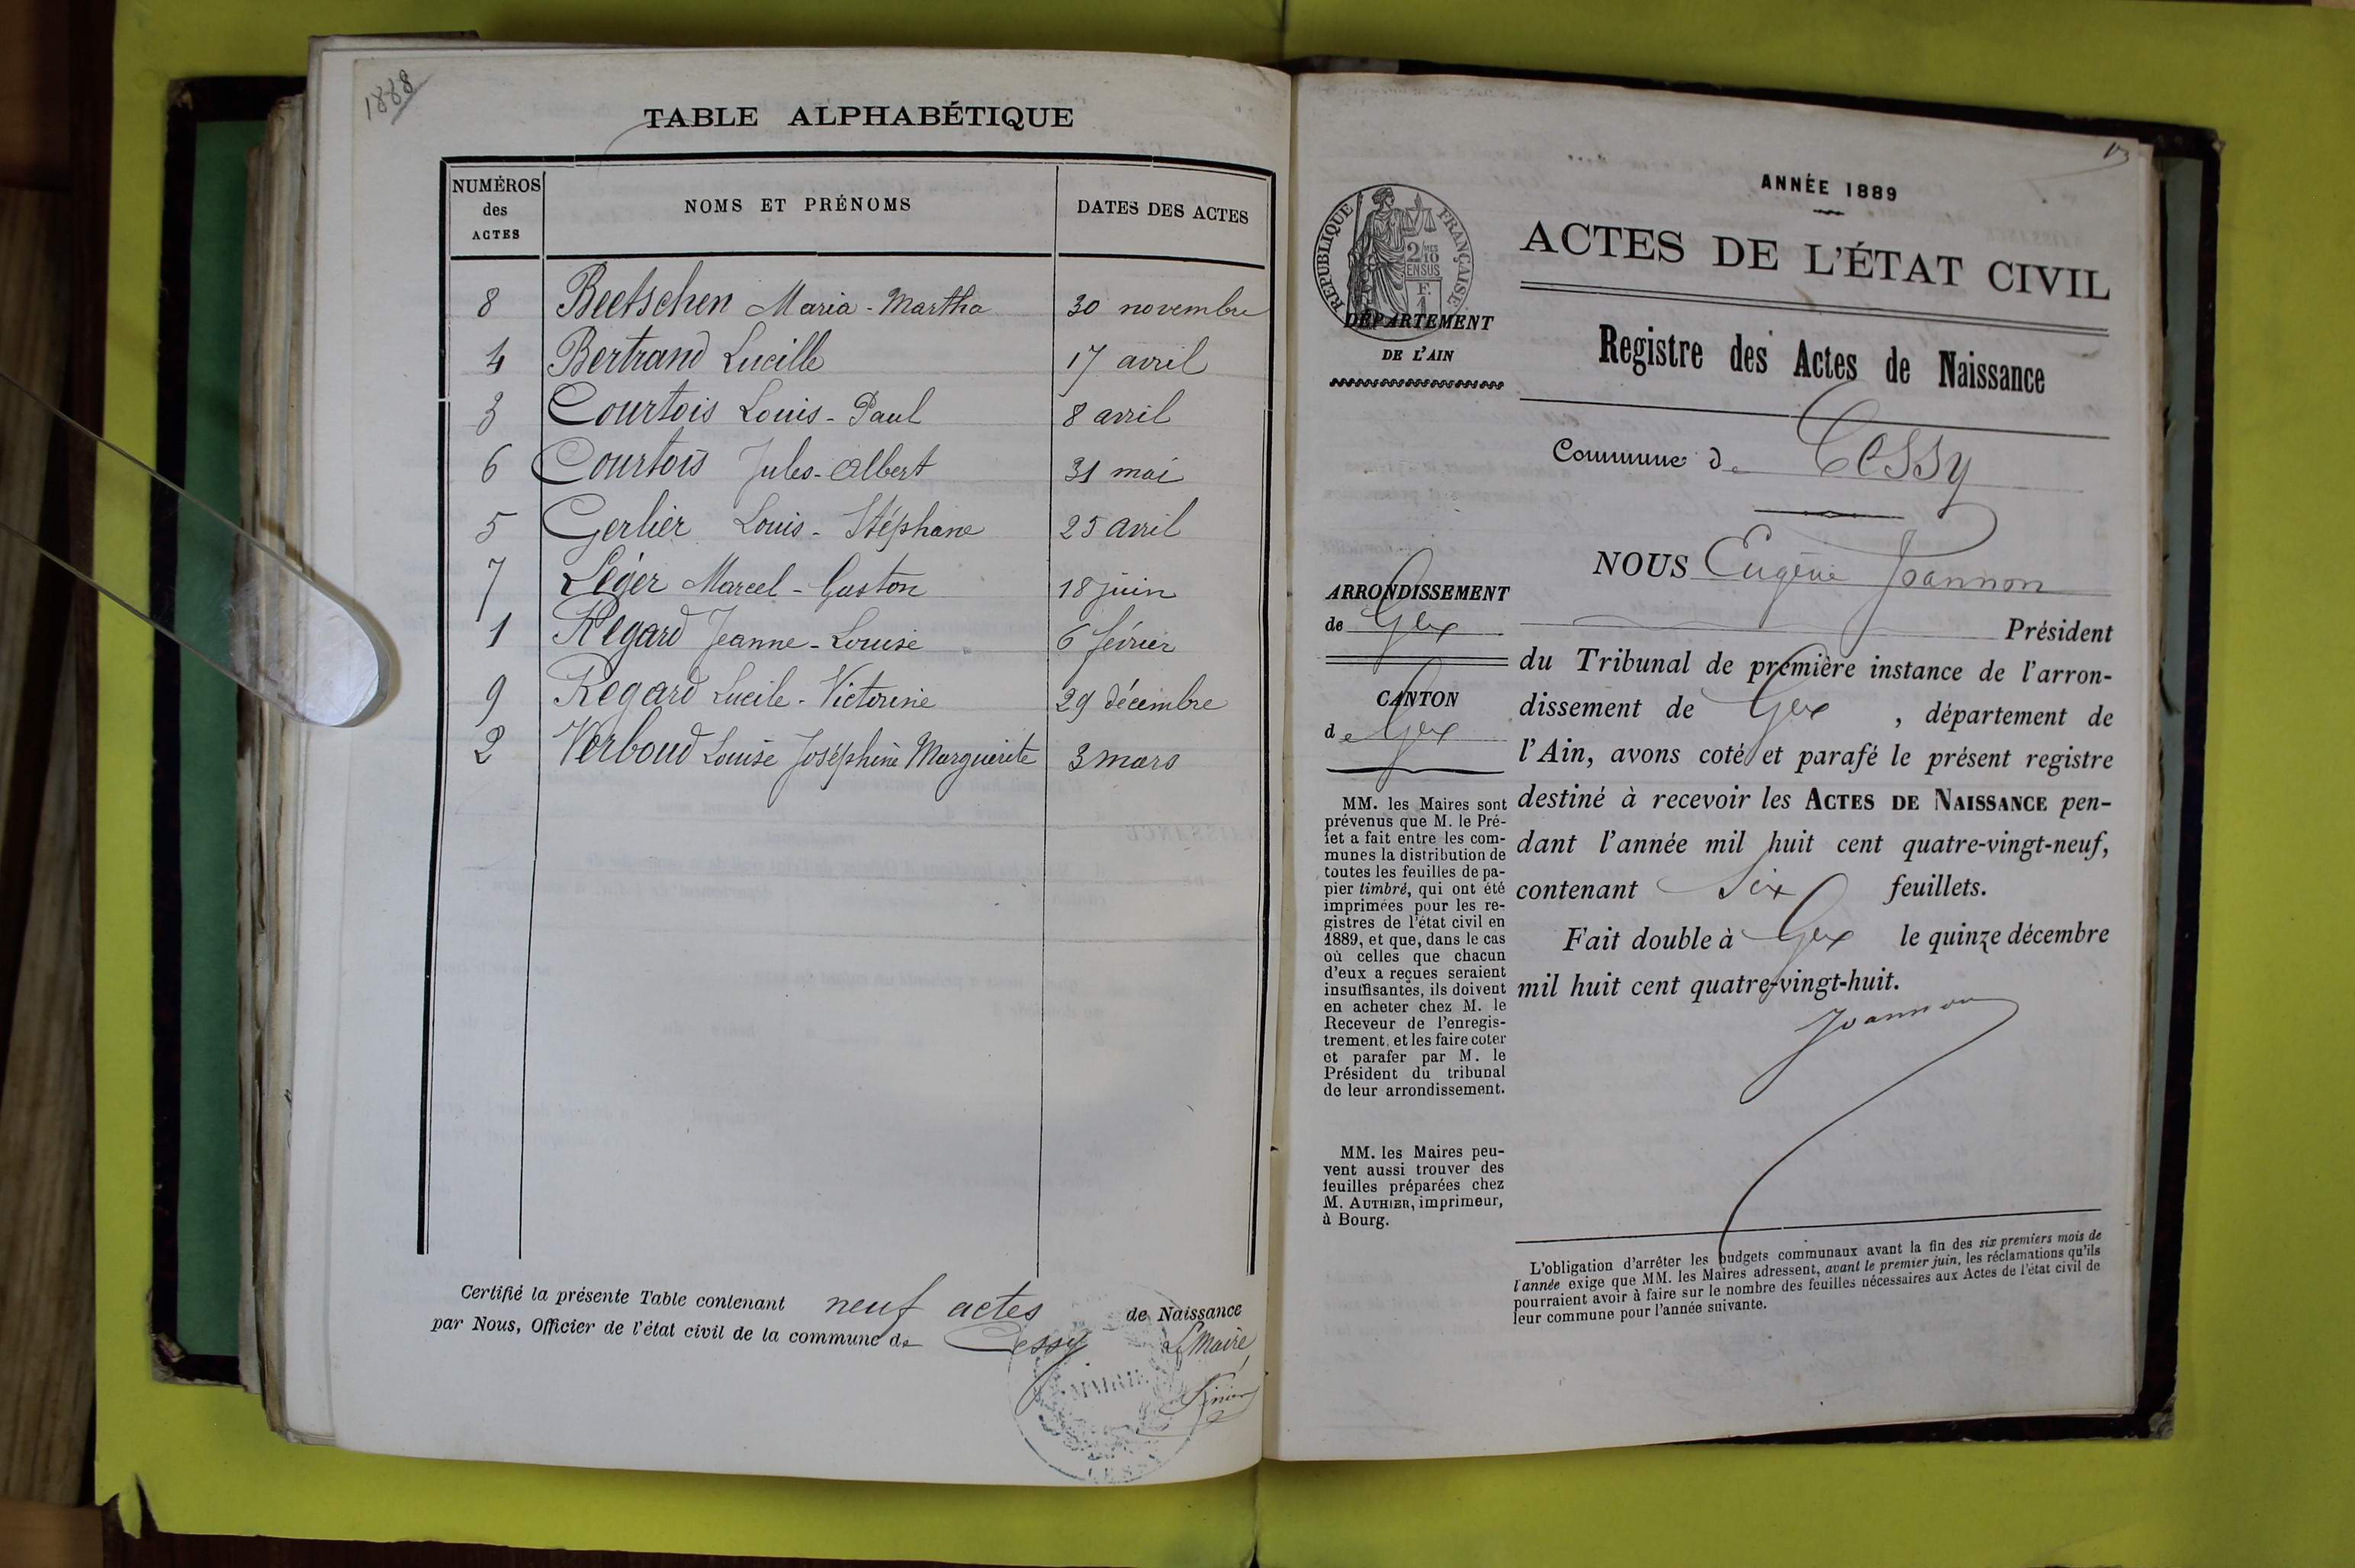 1888
TABLE ALPHABÉTIQUE
NUMÉROS des ACTES
NOMS ET PRÉNOMS
DATES DES ACTES
8 Beetschen Maria - Martha 30 novembre
4 Bertrand Lucille 17 avril
3 Courtois Louis - Paul 8 avril
6 Courtois Jules - Albert 31 mai
5 Gerlier Louis - Stéphane 25 avril
7 Léger Marcel - Gaston 18 juin
1 Regard Jeanne - Louise 6 février
9 Regard Lucile - Victorine 29 décembre
2 Verboud Louise Joséphine Marguerite 3 mars
Certifié la présente Table contenant neuf actes de Naissance
par Nous, Officier de l'état civil de la commune de Cessy
Le Maire
MAIRIE
CESSY
ANNÉE 1889
ACTES DE L'ÉTAT CIVIL
Registre des Actes de Naissance
Commune de Cessy
RÉPUBLIQUE FRANÇAISE
2/10
EN SUS
F.
1
DÉPARTEMENT
DE L'AIN
ARRONDISSEMENT
de Gex
CANTON
de Gex
MM. les Maires sont
prévenus que M. le Pré-
fet a fait entre les com-
munes la distribution de
toutes les feuilles de pa-
pier timbré, qui ont été
imprimées pour les re-
gistres de l'état civil en
1889, et que, dans le cas
où celles que chacun
d'eux a reçues seraient
insuffisantes, ils doivent
en acheter chez M. le
Receveur de l'enregis-
trement, et les faire coter
et parafer par M. le
Président du tribunal
de leur arrondissement.
MM. les Maires peu-
vent aussi trouver des
feuilles préparées chez
M. AUTHIER, imprimeur,
à Bourg.
NOUS Eugène Joannon
Président
du Tribunal de première instance de l'arron-
dissement de Gex , département de
l'Ain, avons coté et parafé le présent registre
destiné à recevoir les ACTES DE NAISSANCE pen-
dant l'année mil huit cent quatre-vingt-neuf,
contenant Six feuillets.
Fait double à Gex le quinze décembre
mil huit cent quatre-vingt-huit.
Joannon
L'obligation d'arrêter les budgets communaux avant la fin des six premiers mois de
l'année exige que MM. les Maires adressent, avant le premier juin, les réclamations qu'ils
pourraient avoir à faire sur le nombre des feuilles nécessaires aux Actes de l'état civil de
leur commune pour l'année suivante.